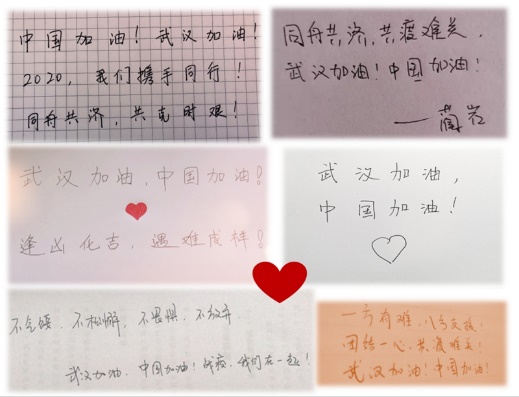 中国加油！武汉加油！
2020，我们携手同行！
同舟共济，共克时艰！
同舟共济，共疫难关．
武汉加油！中国加油！
武汉加油，中国加油！
逢凶化吉，遇难成祥！
武汉加油，
中国加油！
不松懈，不畏惧，不放弃．
武汉加油．中国加油！战疫，我们在一起！
一方有难，八方支援！
团结一心，共度难关！
武汉加油！中国加油！